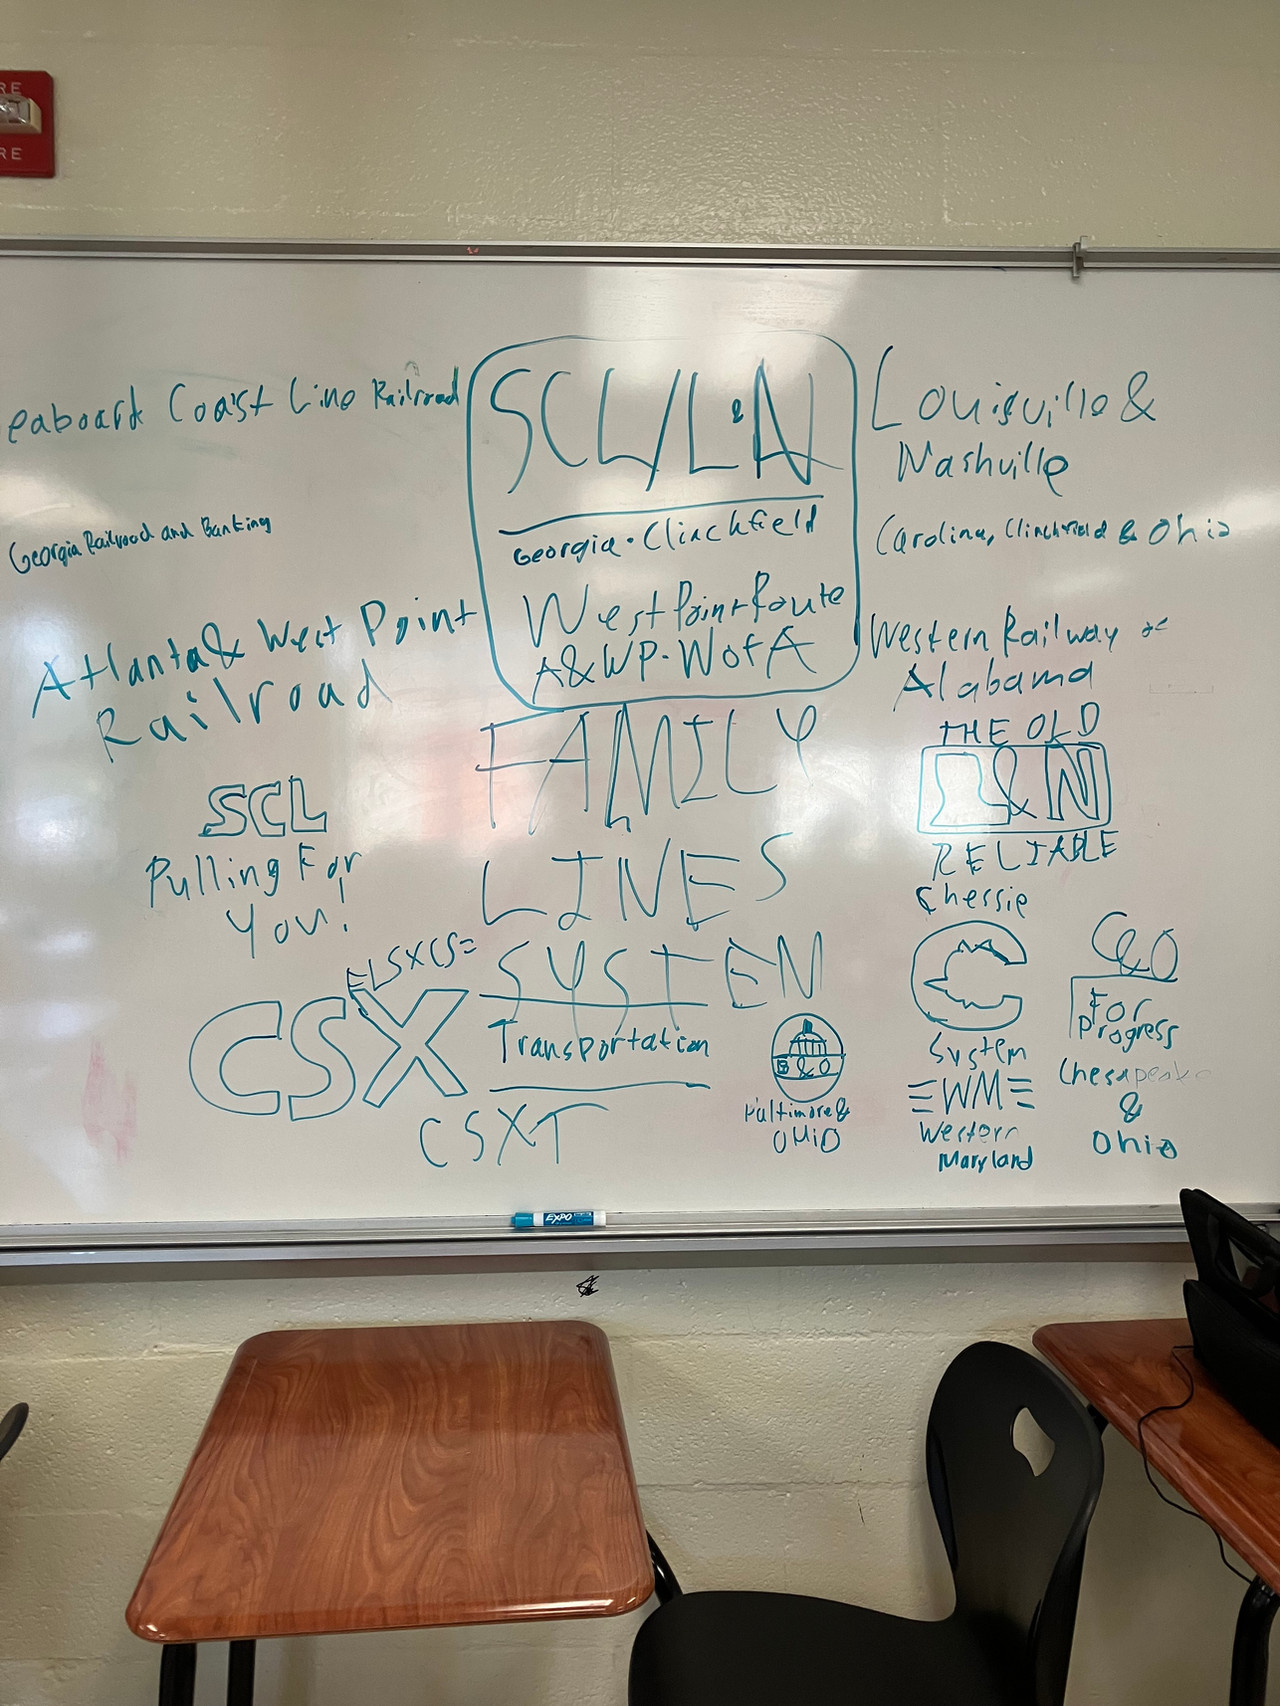 RE
RE
eaboard Coast Line Railroad
SCL/L&N
Louisville &
Nashville
Georgia Railroad and Banking
Georgia · Clinchfield
Carolina, Clinchfield & Ohio
West Point Route
A&WP · WofA
Atlanta & West Point
Railroad
Western Railway of
Alabama
FAMILY
LINES
SYSTEM
SCL
Pulling For
You!
THE OLD
L&N
RELIABLE
CSX
Transportation
CSXT
B & O
Baltimore &
OHIO
Chessie
C
System
WM
Western
Maryland
C&O
For
Progress
Chesapeake
&
Ohio
EXPO